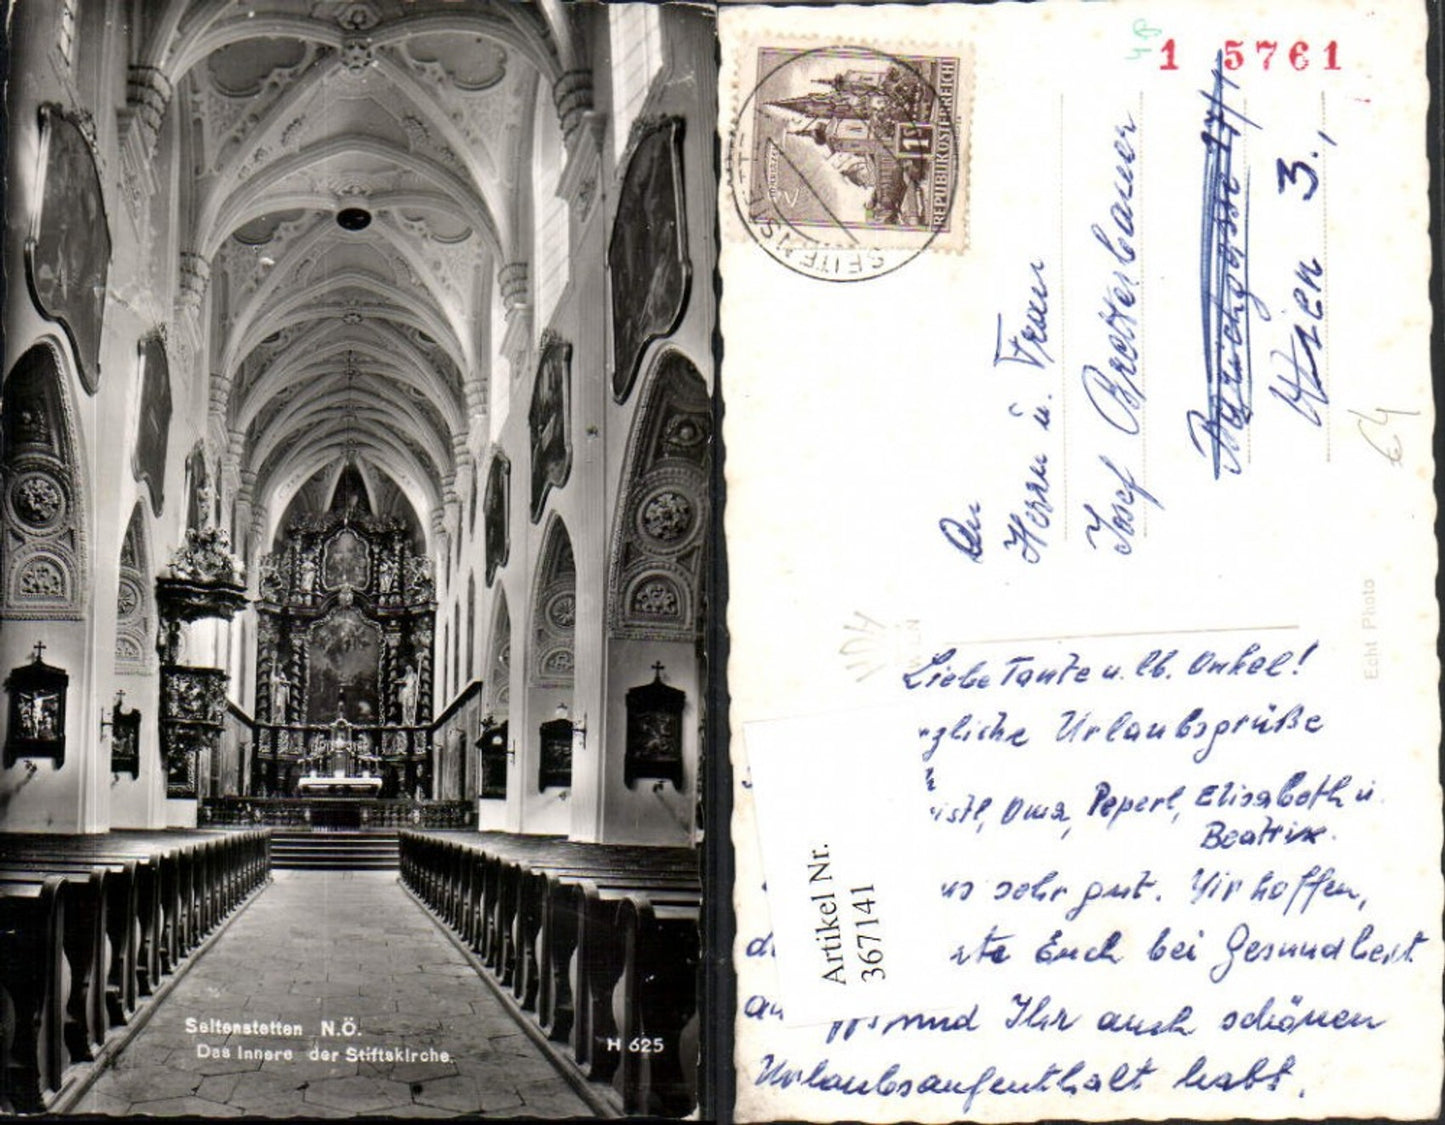 Seitenstetten N.Ö.
Das Innere der Stiftskirche.
H 625
1 5761
REPUBLIK ÖSTERREICH
SEITENS
An
Herrn u. Frau
Josef
Wien 3.,
64
Echt Photo
Liebe Tante u. lb. Onkel!
zliche Urlaubsgrüße
istl, Oma, Peperl, Elisabeth u.
Beatrix.
ns sehr gut. Wir hoffen,
Euch bei Gesundheit
Ihr auch schönen
Urlaubsaufenthalt habt.
Artikel Nr.
367141